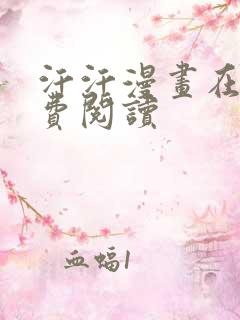 汗汗漫畫在
費閱讀
血蝠1